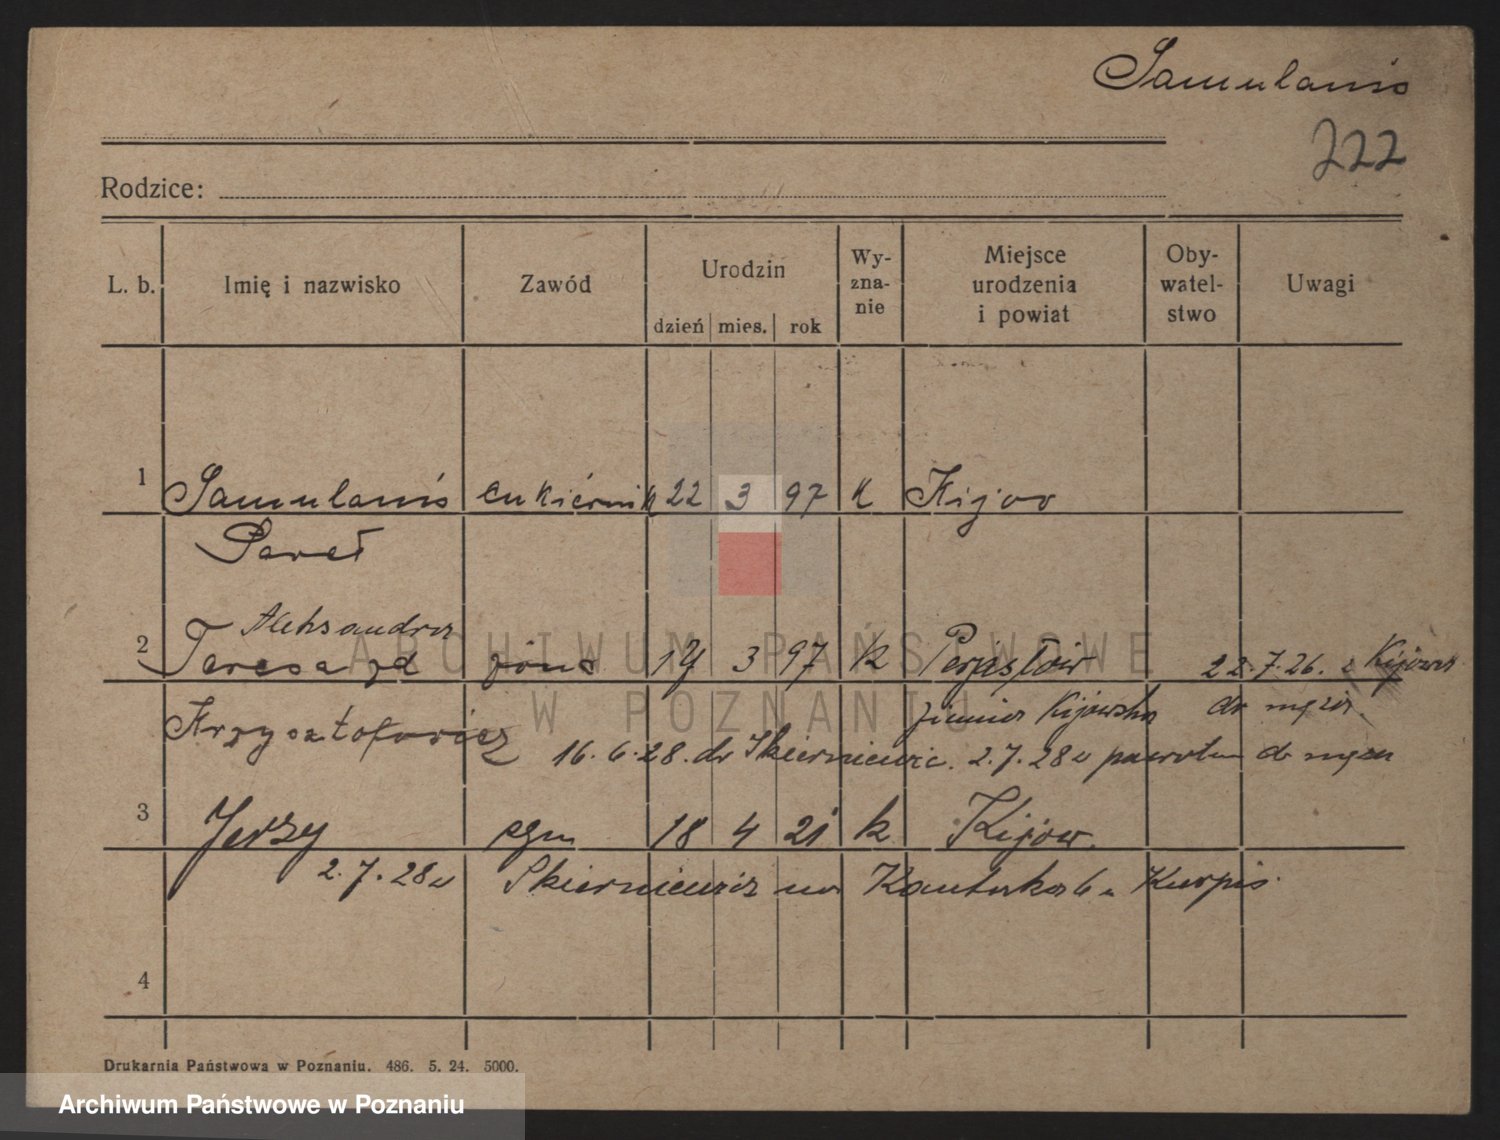 Samulanis
222
Rodzice:
L. b. Imię i nazwisko Zawód Urodzin dzień mies. rok Wy-zna-nie Miejsce urodzenia i powiat Oby-watel-stwo Uwagi
1 Samulanis cukiernik 22 3 97 k Kijow
Paweł
Aleksandra
2 Teresa zd żona 19 3 97 k Perjasłów 22.7.26. z Kijowa
Krzysztofowicz ziemia Kijowska do męża.
16.6.28. do Skierniewic. 2.7.28 z powrotem do męża
3 Jerzy syn 18 4 21 k Kijow.
2.7.28 z Skierniewic na 6 u Kurpis.
4
Drukarnia Państwowa w Poznaniu. 486. 5. 24. 5000.
ARCHIWUM PAŃSTWOWE
W POZNANIU
Archiwum Państwowe w Poznaniu